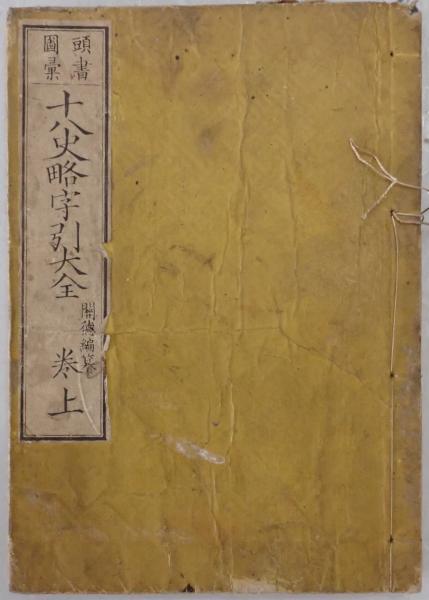 頭書
圖彙
十八史略字引大全
關德編纂
巻上